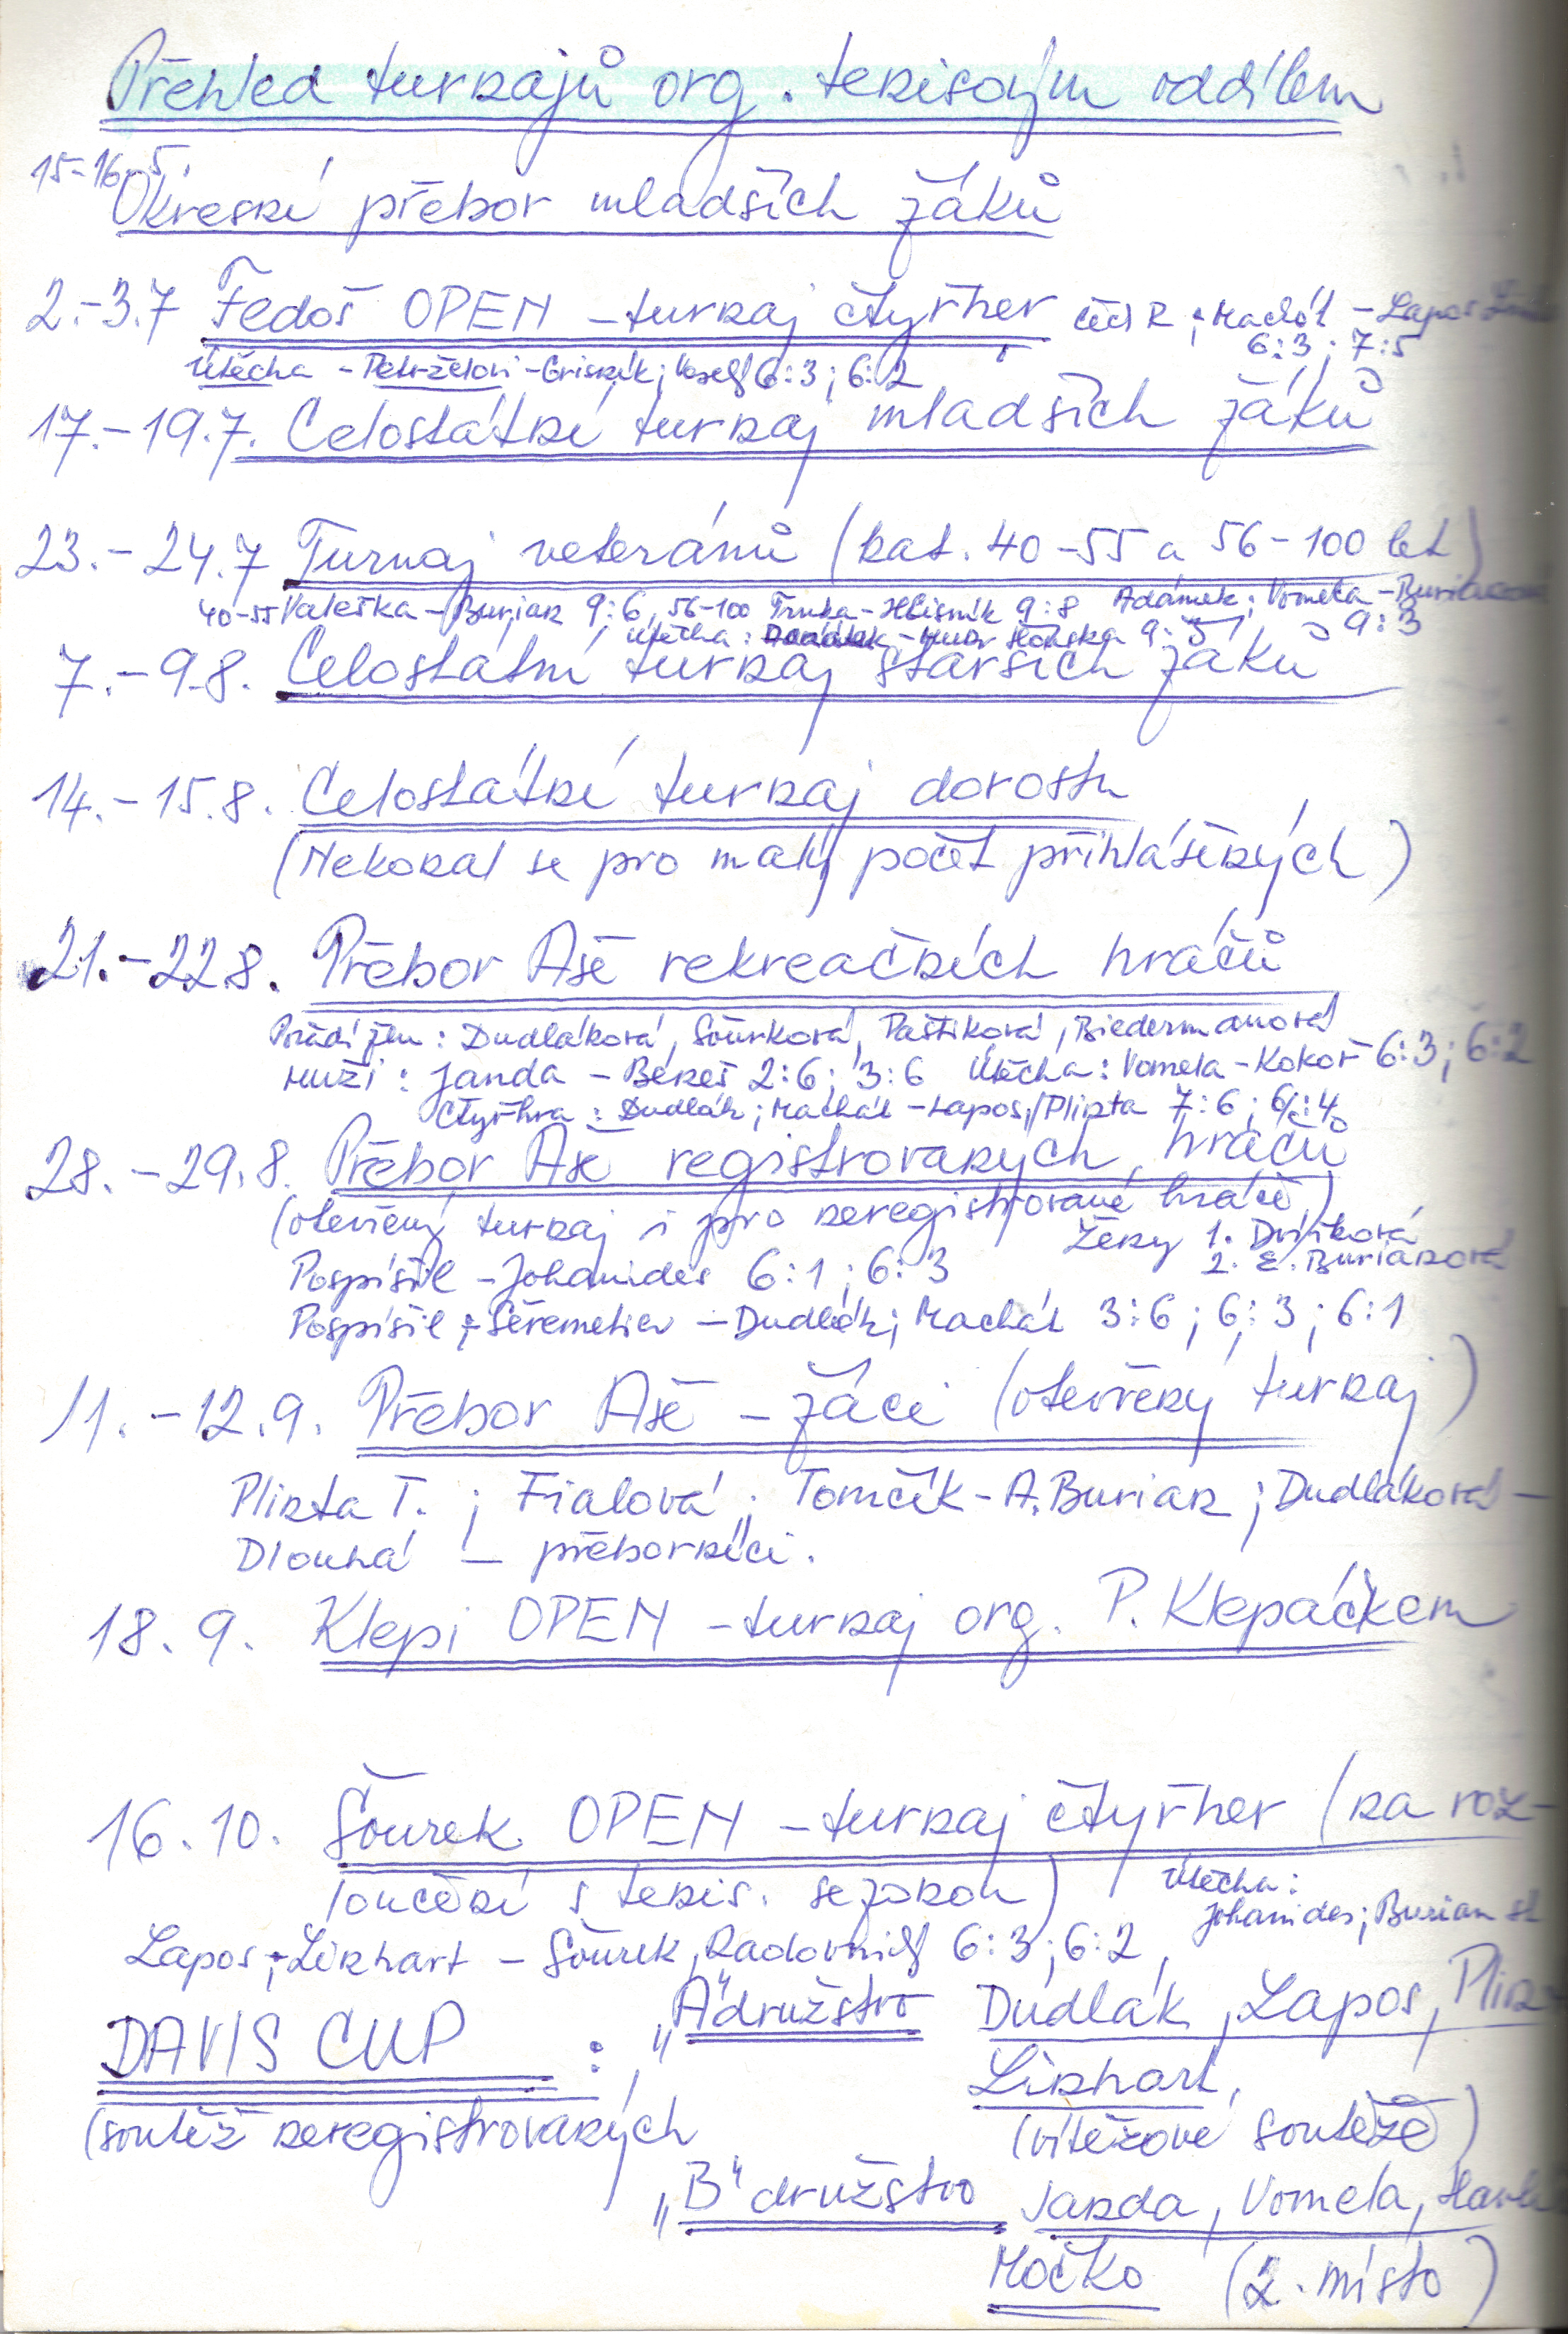 Přehled turnajů org. tenisovým oddílem
15-16.5.
Okresní přebor mladších žáků
2.-3.7 Fedoš OPEN - turnaj čtyřher R ; Machát - Lapos
6:3 ; 7:5
Útěcha - Petrželovi - ; Veselý 6:3 ; 6:2
17.-19.7. Celostátní turnaj mladších žáků
23.-24.7 Turnaj veteránů (kat. 40-55 a 56-100 let)
40-55 Valeška - Burian 9:6, 56-100 Trnka - Hlisník 9:8 Adámek ; Vomela - Burianová
9:3
Útěcha : - 9:5
7.-9.8. Celostátní turnaj starších žáků
14.-15.8. Celostátní turnaj dorostu
(Nekonal se pro malý počet přihlášených)
21.-22.8. Přebor Aše rekreačních hráčů
Pořadí žen : Dudláková, Šourková, Paštiková, Biedermanová
Muži : Janda - Béreš 2:6 ; 3:6 Útěcha : Vomela - Kokoř 6:3 ; 6:2
Čtyřhra : Dudlák ; Machát - Lapos, Plinta 7:6 ; 6:4
28.-29.8. Přebor Aše registrovaných hráčů
(otevřený turnaj i pro neregistrované hráče)
Ženy 1. Dvořková
2. E. Burianová
Pospíšil - Johanides 6:1 ; 6:3
Pospíšil ; Šeremetiev - Dudlák ; Machát 3:6 ; 6:3 ; 6:1
11.-12.9. Přebor Aše - žáci (otevřený turnaj)
Plinta T. ; Fialová ; Tomčík - A. Burian ; Dudláková -
Dlouhá - přeborníci.
18.9. Klepi OPEN - turnaj org. P. Klepáčkem
16.10. Šourek OPEN - turnaj čtyřher (na roz-
loučení s tenis. sezonou)
Útěcha :
Johanides ; Burian st
Lapos ; Linhart - Šourek, Radovnický 6:3 ; 6:2,
DAVIS CUP : „A" družstvo Dudlák, Lapos, Plin
Linhart,
(soutěž neregistrovaných (vítězové soutěže)
„B" družstvo Janda, Vomela,
Močko (2. místo)